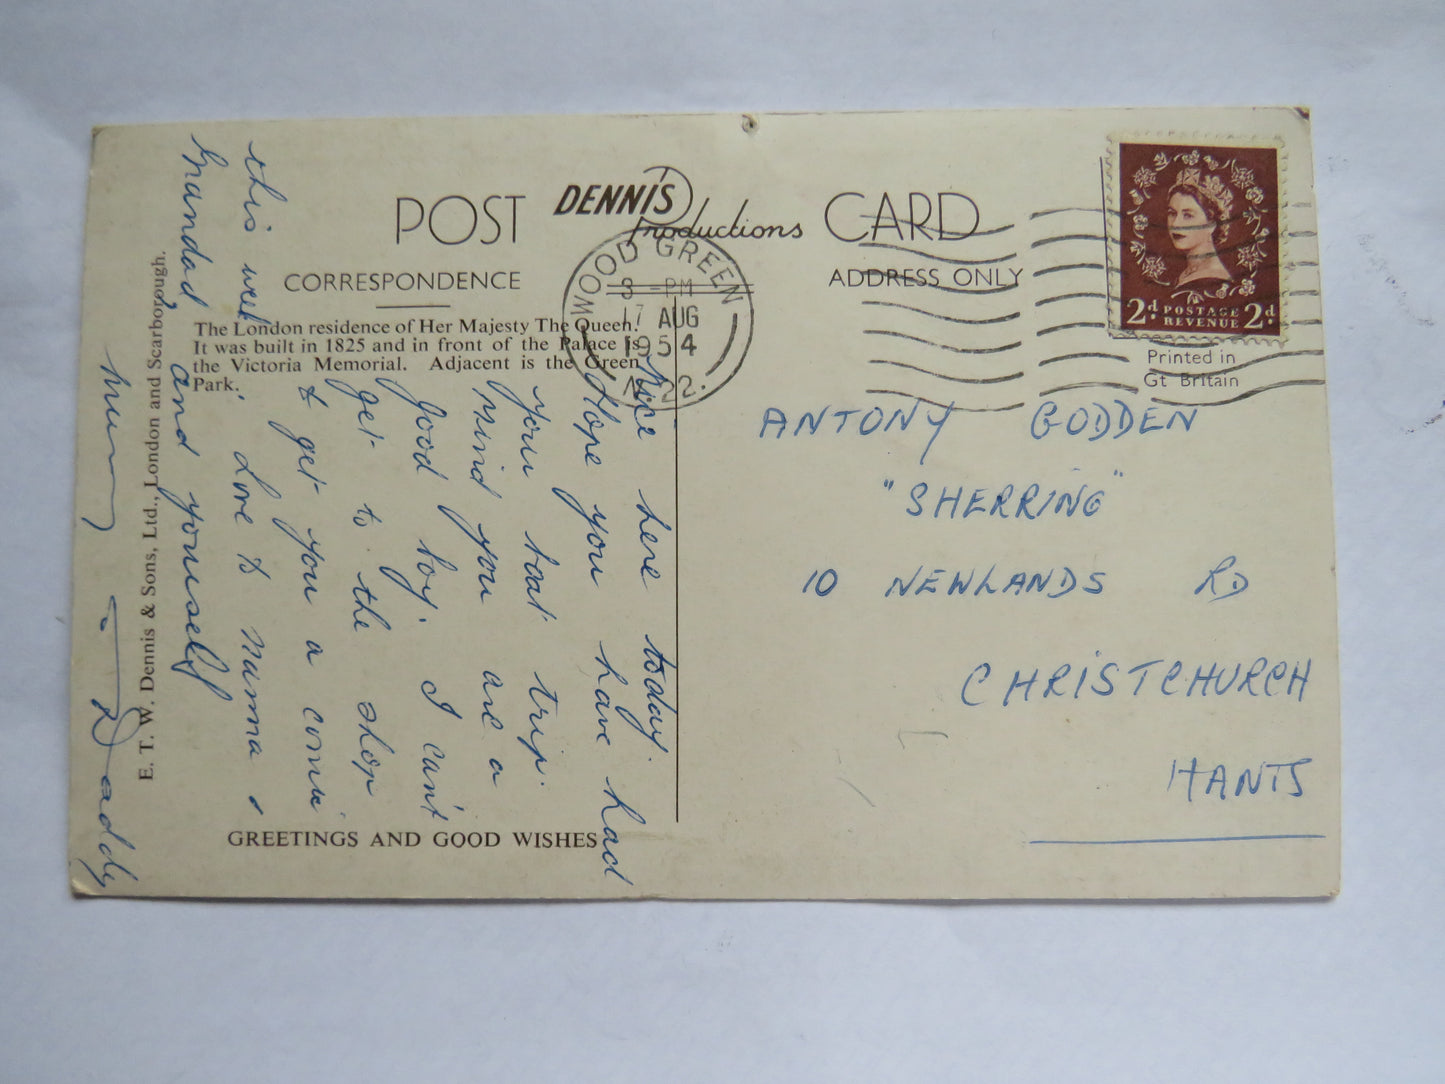 POST DENNIS Productions CARD
CORRESPONDENCE
ADDRESS ONLY
The London residence of Her Majesty The Queen.
It was built in 1825 and in front of the Palace is
the Victoria Memorial. Adjacent is the Green
Park.
GREETINGS AND GOOD WISHES
E. T. W. Dennis & Sons, Ltd., London and Scarborough.
WOOD GREEN
3 - PM
17 AUG
1954
N.22.
2d POSTAGE REVENUE 2d
Printed in
Gt Britain
ANTONY GODDEN
"SHERRING"
10 NEWLANDS RD
CHRISTCHURCH
HANTS
Nice here today.
Hope you have had
your boat trip.
Mind you are a
good boy. I can't
get to the shop
to get you a comic
this week. Love to Nanna &
Grandad and yourself
Mummy & Daddy